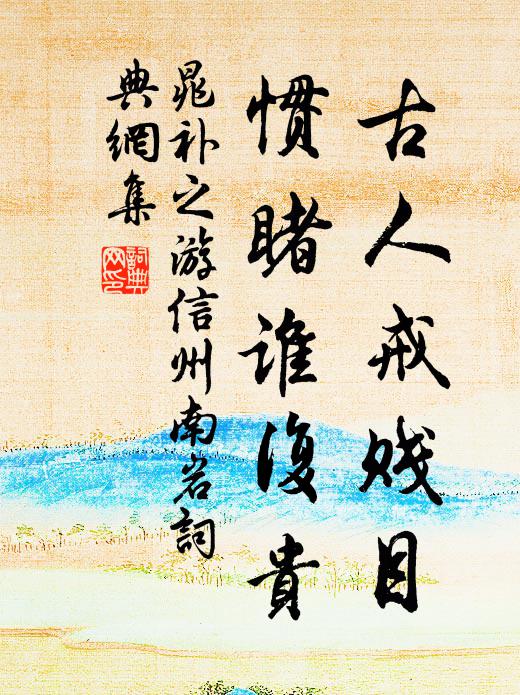 古人戒贱目
惯睹谁復貴
晁补之游信州南岩詞
典網集
詞典網印